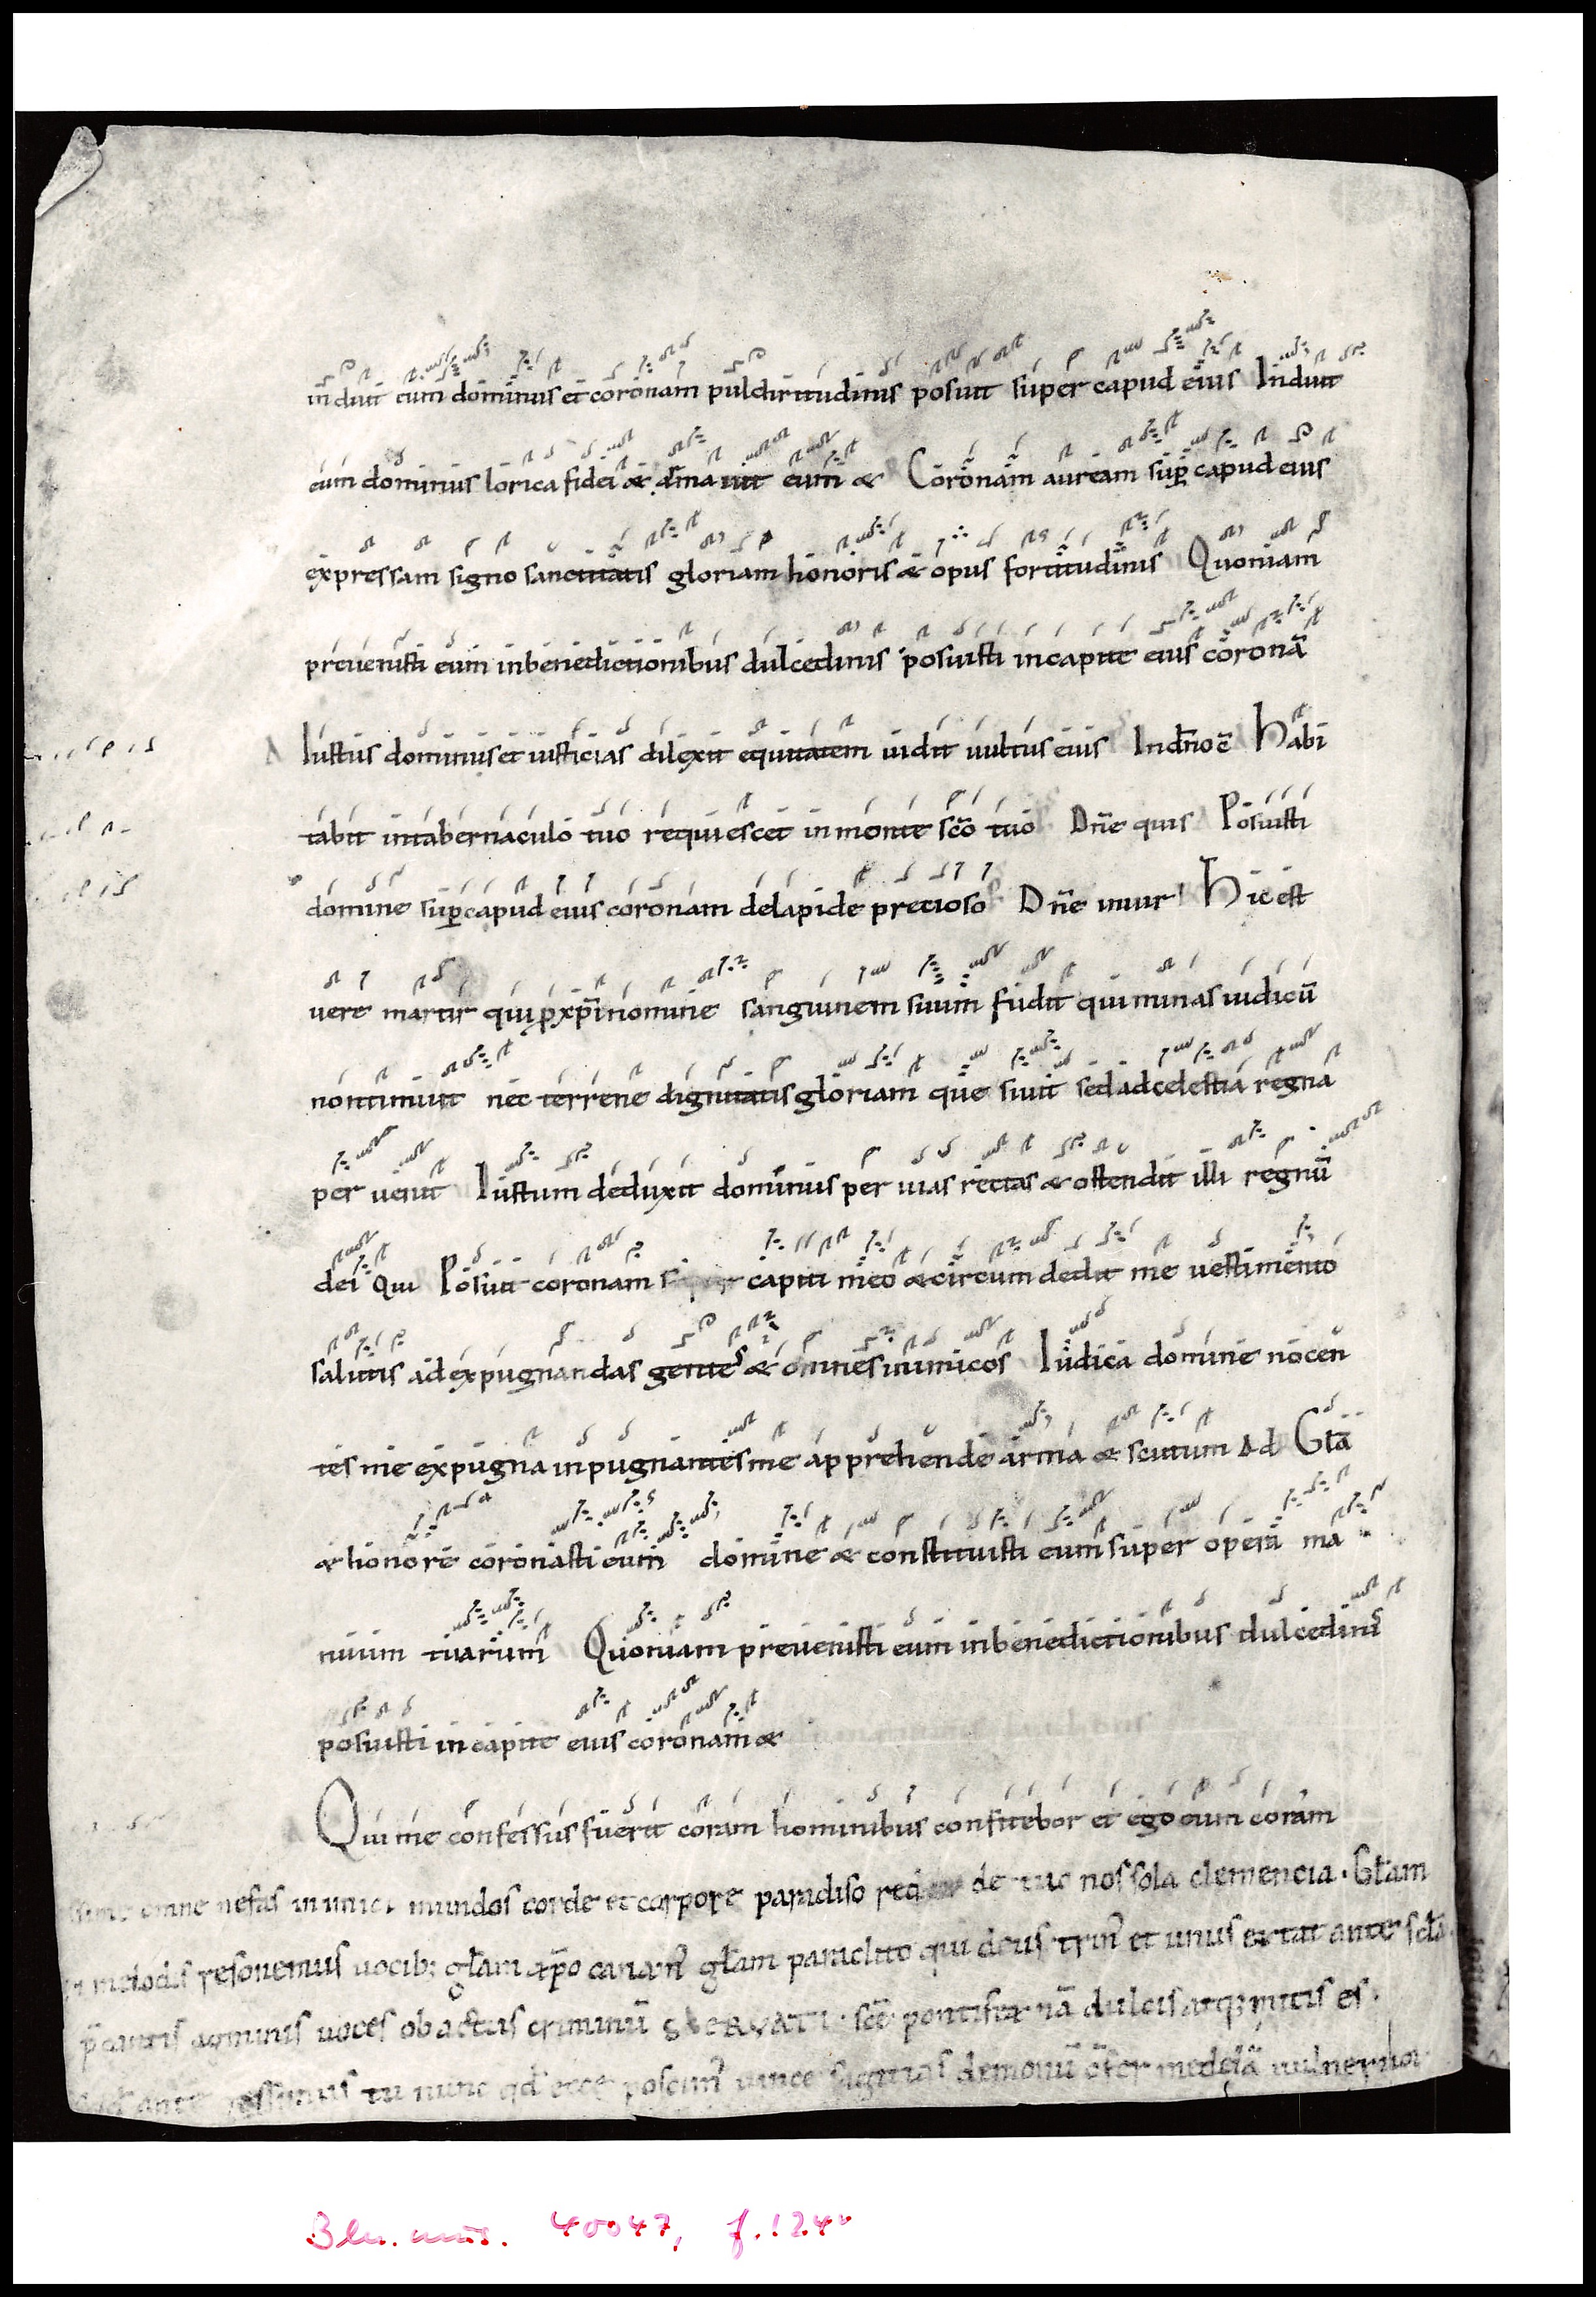 induit eum dominus et coronam pulchritudinis posuit super capud eius Induit
eum dominus lorica fidei & armauit eum & Coronam auream sup capud eius
expressam signo sanctitatis gloriam honoris & opus fortitudinis Quoniam
preuenisti eum inbenedictionibus dulcedinis posuisti incapite eius coronā
Iustus dominus et iusticias dilexit equitatem uidit uultus eius Indnoē Habi
tabit intabernaculo tuo requiescet inmonte scō tuo Dn̄e quis Posuisti
domine sup capud eius coronam delapide precioso Dn̄e inuir Hic est
uere martir qui p xp̄i nomine sanguinem suum fudit qui minas iudicū
non timuit nec terrene dignitatis gloriam que siuit sed adcelestia regna
per uenit Iustum deduxit dominus per uias rectas & ostendit illi regnū
dei Qui Posuit coronam super capiti meo & circum dedit me uestimento
salutis ad expugnandas gentes & omnes inimicos Iudica domine nocen
tes me expugna inpugnantes me apprehende arma & scutum Ad Gl̄a
& honore coronasti eum domine & constituisti eum super opera ma
nuum tuarum Quoniam preuenisti eum inbenedictionibus dulcedinis
posuisti in capite eius coronam &
Qui me confessus fuerit coram hominibus confitebor et ego eum coram
omne nefas mundos corde et corpore paradiso de tuc nos sola clemencia · Gl̄am
melodis resonemus uocib; gl̄am xp̄o canam᷒ gl̄am paraclito qui deus trin᷒ et unus extat ante scl̄a
p̄cantis agminis uoces ob actus criminū SERVATI · scē pontifex nā dulcis atq; mitis es ·
ante tu nunc qd̄ poscim᷒ sagittas demonū medelā
Ben. mus. 40047, f. 124v